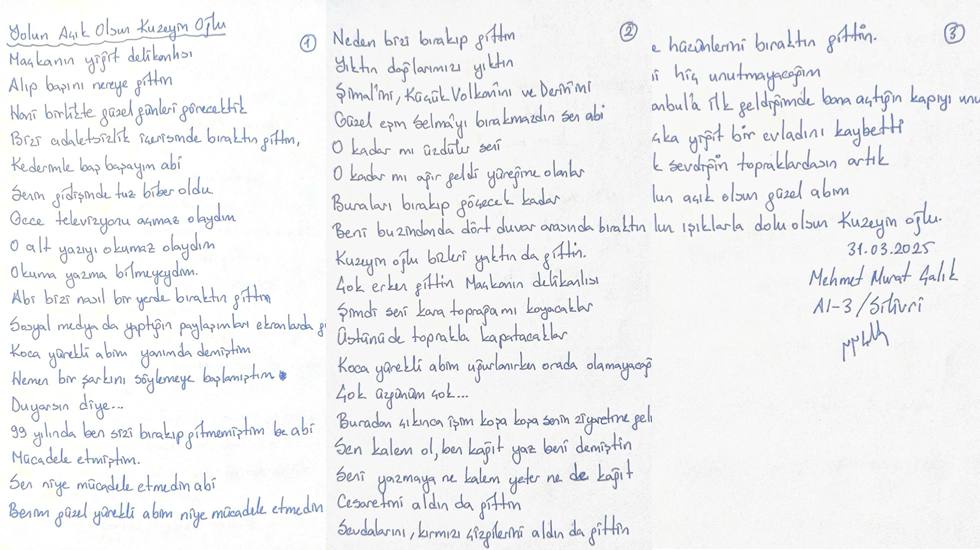 Yolun Açık Olsun Kuzeyin Oğlu
①
Maçkanın yiğit delikanlısı
Alıp başını nereye gittin
Hani birlikte güzel günleri görecektik
Bizi adaletsizlik içerisinde bıraktın gittin,
Kederimle baş başayım abi
Senin gidişinde tuz biber oldu
Gece televizyonu açmaz olaydım
O alt yazıyı okumaz olaydım
Okuma yazma bilmeyeydim.
Abi bizi nasıl bir yerde bıraktın gittin
Sosyal medya da yaptığın paylaşımları ekranlarda g
Koca yürekli abim yanımda demiştim
Hemen bir şarkını söylemeye başlamıştım
Duyarsın diye...
99 yılında ben sizi bırakıp gitmemiştim be abi
Mücadele etmiştim.
Sen niye mücadele etmedin abi
Benim güzel yürekli abim niye mücadele etmedin
②
Neden bizi bırakıp gittin
Yıktın dağlarımızı yıktın
Şimal'imi, Küçük Volkan'ını ve Derin'imi
Güzel eşin Selma'yı bırakmazdın sen abi
O kadar mı üzdüler seni
O kadar mı ağır geldi yüreğine olanlar
Buraları bırakıp göçecek kadar
Beni bu zindanda dört duvar arasında bıraktın
Kuzeyin oğlu bizleri yaktın da gittin.
Çok erken gittin Maçkanın delikanlısı
Şimdi seni kara toprağa mı koyacaklar
Üstünü de toprakla kapatacaklar
Koca yürekli abim uğurlanırken orada olamayacağ
Çok üzgünüm çok...
Buradan çıkınca içim kopa kopa senin ziyaretine geli
Sen kalem ol, ben kağıt yaz beni demiştin
Seni yazmaya ne kalem yeter ne de kağıt
Cesaretini aldın da gittin
Sevdalarını, kırmızı çizgilerini aldın da gittin
③
e hüzünlerini bıraktın gittin.
i hiç unutmayacağım
anbul'a ilk geldiğimde bana açtığın kapıyı unu
çka yiğit bir evladını kaybetti
k sevdiğin topraklardasın artık
lun açık olsun güzel abim
lun ışıklarla dolu olsun Kuzeyin oğlu.
31.03.2025
Mehmet Murat Çalık
A1-3/Silivri